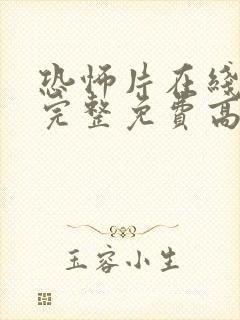 恐怖片在线
完整免费高
玉容小生